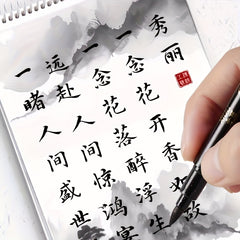 秀丽
一念花开香必故
一念花落醉浮生
远赴人间惊鸿宴
一睹人间盛世